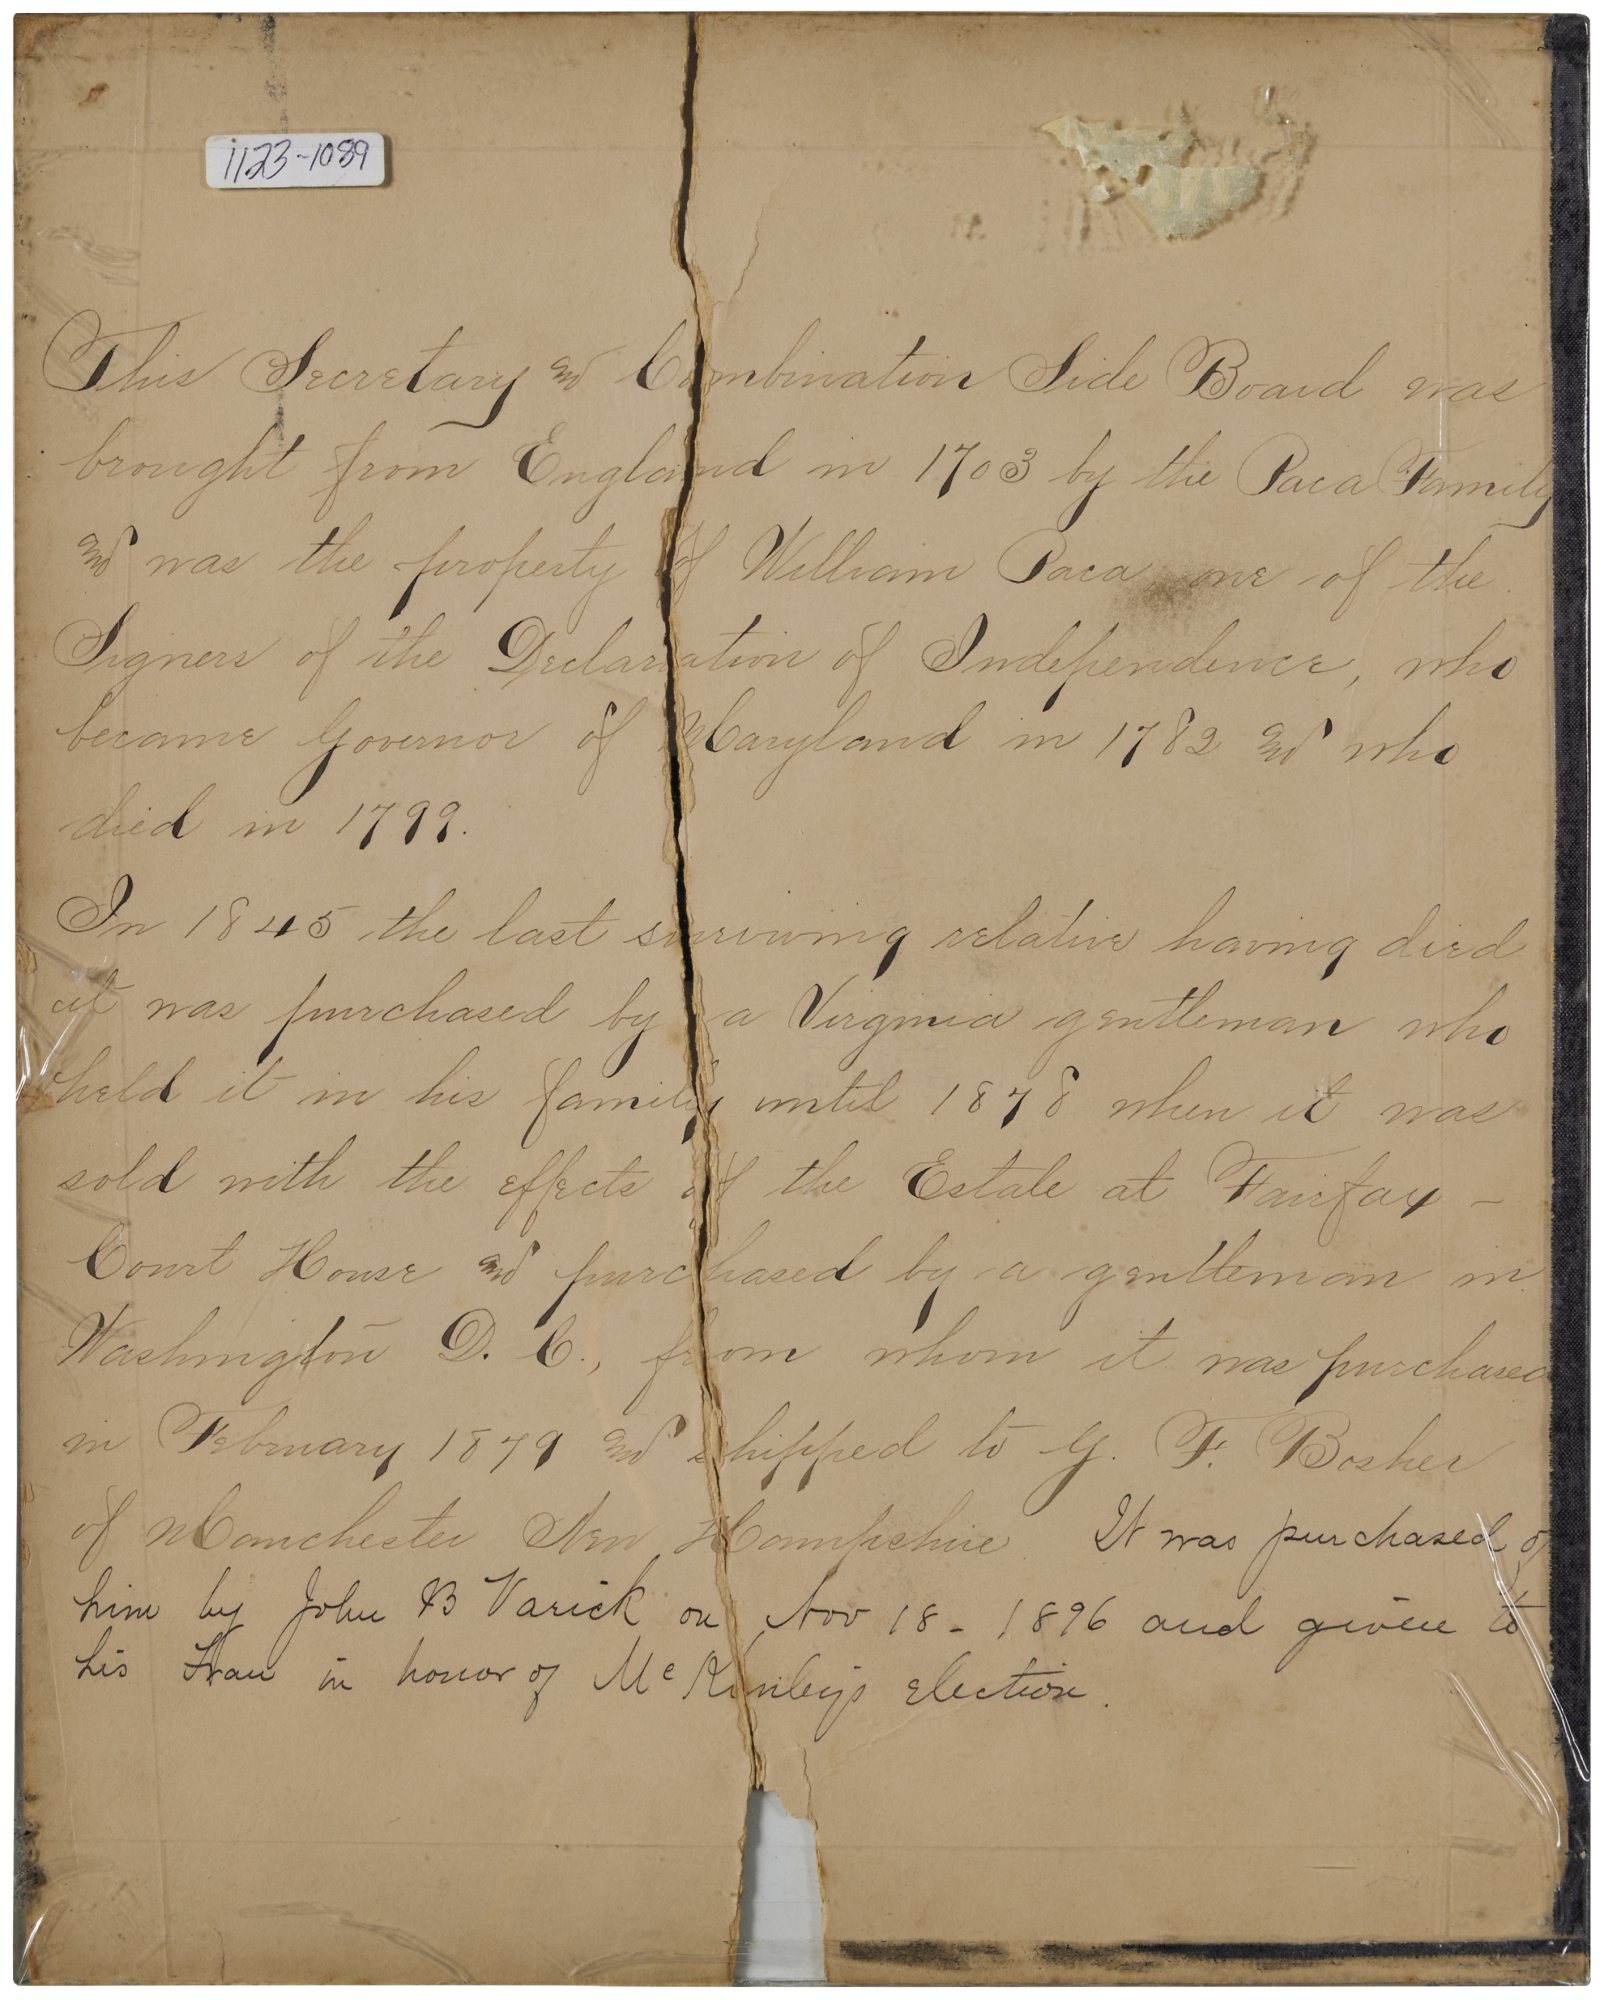 1123-1089
This Secretary and Combination Side Board was
brought from England in 1703 by the Paca Family
and was the property of William Paca one of the
Signers of the Declaration of Independence, who
became Governor of Maryland in 1782 and who
died in 1799.
In 1845 the last surviving relative having died
it was purchased by a Virginia gentleman who
held it in his family until 1878 when it was
sold with the effects of the Estate at Fairfax -
Court House and purchased by a gentleman in
Washington D. C., from whom it was purchased
in February 1879 and shipped to G. F. Bosher
of Manchester New Hampshire. It was purchased of
him by John B Varick on Nov 18 - 1896 and given to
his Frau in honor of McKinleys election.